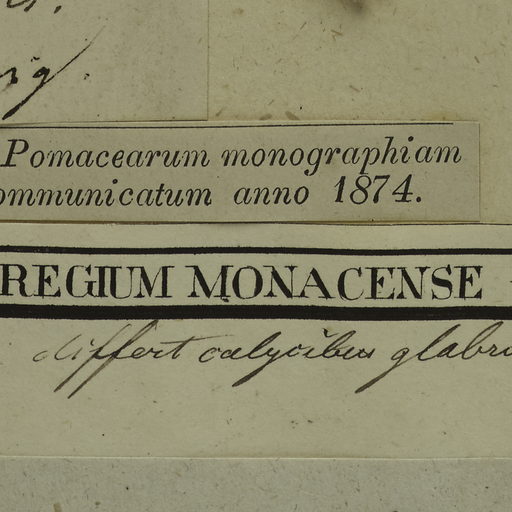 Pomacearum monographiam
ommunicatum anno 1874.
REGIUM MONACENSE
differt calycibus glabri